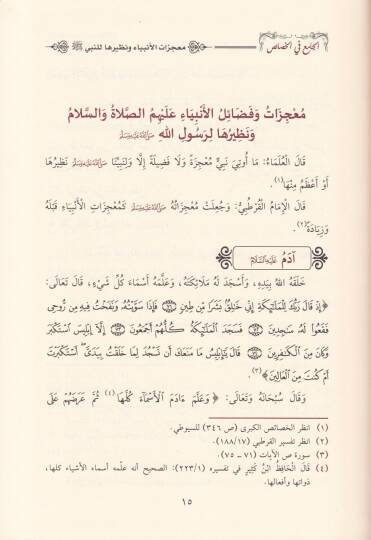 الجامع في الخصائص
معجزات الأنبياء ونظيرها للنبي ﷺ
مُعْجِزَاتُ وَفَضَائِلُ الأَنْبِيَاءِ عَلَيْهِمُ الصَّلَاةُ وَالسَّلَامُ
وَنَظِيرُهَا لِرَسُولِ اللهِ ﷺ
قَالَ الْعُلَمَاءُ: مَا أُوتِيَ نَبِيٌّ مُعْجِزَةً وَلَا فَضِيلَةً إِلَّا وَلِنَبِيِّنَا ﷺ نَظِيرُهَا
أَوْ أَعْظَمُ مِنْهَا(١).
قَالَ الْإِمَامُ الْقُرْطُبِيُّ: وَجُعِلَتْ مُعْجِزَاتُهُ ﷺ كَمُعْجِزَاتِ الْأَنْبِيَاءِ قَبْلَهُ
وَزِيَادَةً(٢).
آدَمُ عَلَيْهِ السَّلَامُ
خَلَقَهُ اللهُ بِيَدِهِ، وَأَسْجَدَ لَهُ مَلَائِكَتَهُ، وَعَلَّمَهُ أَسْمَاءَ كُلِّ شَيْءٍ، قَالَ تَعَالَى:
﴿إِذْ قَالَ رَبُّكَ لِلْمَلَٰٓئِكَةِ إِنِّي خَٰلِقٌۢ بَشَرًا مِّن طِينٍ ٧١ فَإِذَا سَوَّيْتُهُۥ وَنَفَخْتُ فِيهِ مِن رُّوحِي
فَقَعُوا۟ لَهُۥ سَٰجِدِينَ ٧٢ فَسَجَدَ ٱلْمَلَٰٓئِكَةُ كُلُّهُمْ أَجْمَعُونَ ٧٣ إِلَّآ إِبْلِيسَ ٱسْتَكْبَرَ
وَكَانَ مِنَ ٱلْكَٰفِرِينَ ٧٤ قَالَ يَٰٓإِبْلِيسُ مَا مَنَعَكَ أَن تَسْجُدَ لِمَا خَلَقْتُ بِيَدَيَّ ۖ أَسْتَكْبَرْتَ
أَمْ كُنتَ مِنَ ٱلْعَالِينَ﴾(٣).
وَقَالَ سُبْحَانَهُ وَتَعَالَى: ﴿وَعَلَّمَ ءَادَمَ ٱلْأَسْمَآءَ كُلَّهَا(٤) ثُمَّ عَرَضَهُمْ عَلَى
(١) انظر الخصائص الكبرى (ص ٣٤٦) للسيوطي.
(٢) انظر تفسير القرطبي (١٨٨/١٧).
(٣) سورة ص الآيات (٧١ – ٧٥).
(٤) قَالَ الْحَافِظُ ابْنُ كَثِيرٍ في تفسيره (٢٢٣/١): الصحيح أنه علَّمه أسماء الأشياء كلها،
ذواتها وأفعالها.
١٥